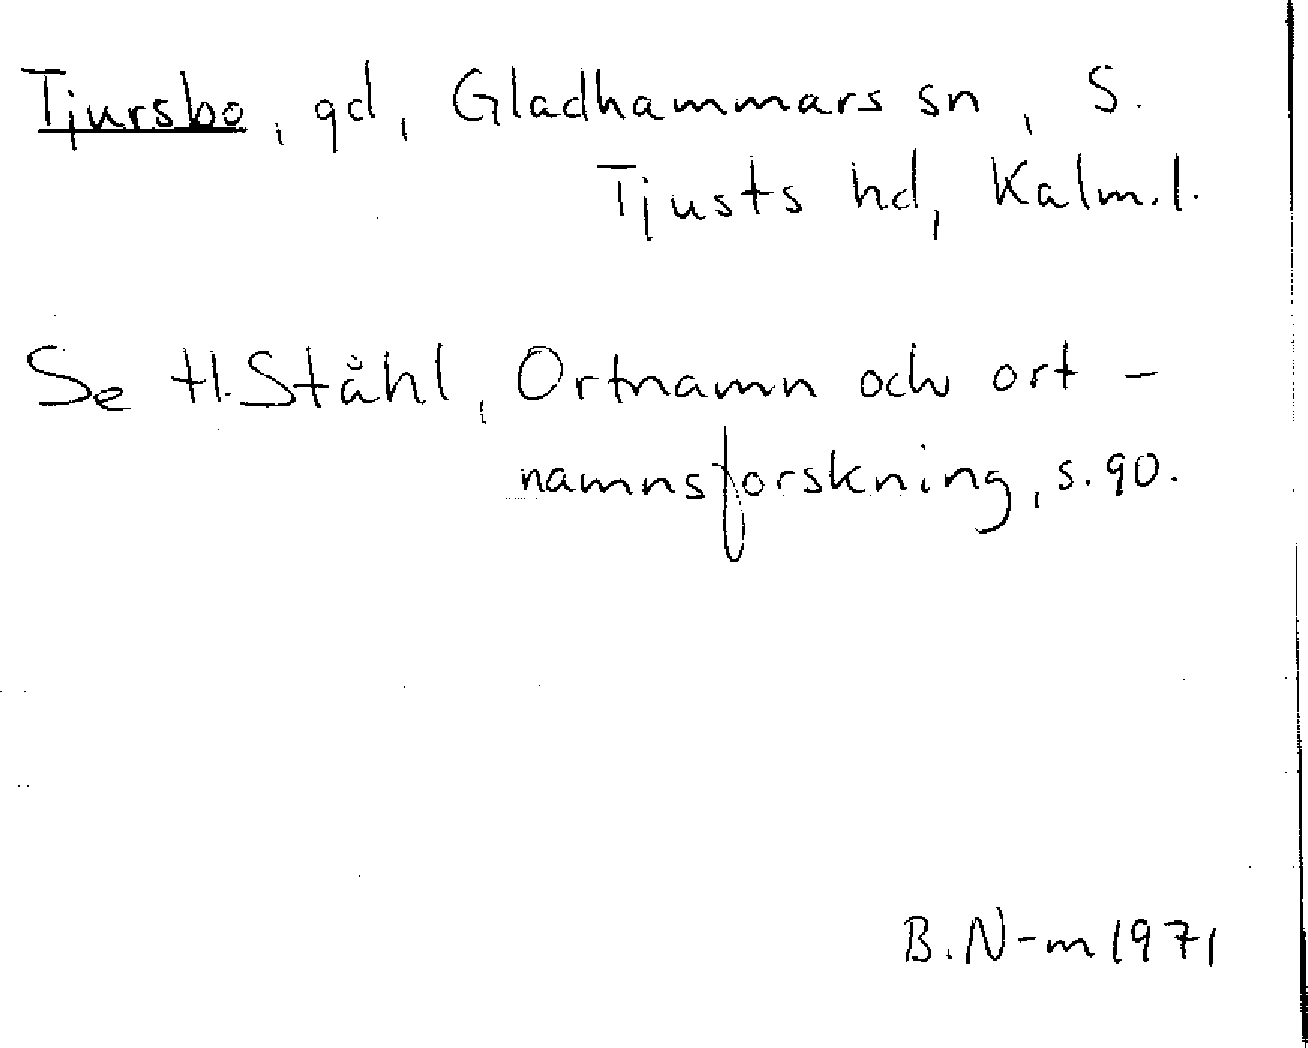 Tjursbo, gd, Gladhammars sn, S.
Tjusts hd, Kalm.l.
Se H. Ståhl, Ortnamn och ort-
namnsforskning, s. 90.
B. N-m 1971